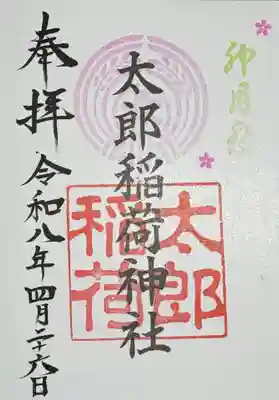 卯月詣
太郎稲荷神社
太郎
稲荷
奉拝
令和八年四月二十六日